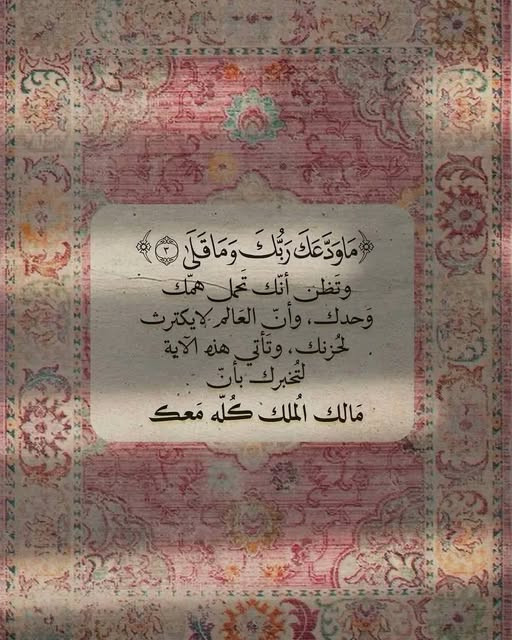 ﴿مَا وَدَّعَكَ رَبُّكَ وَمَا قَلَىٰ ٣﴾
وتَظن أنّك تَحمل همّك
وَحدك، وأنّ العَالم لايكترث
لحُزنك، وتَأتي هذه الآية
لتُخبرك بأنّ
مَالك المُلك كُلّه مَعك